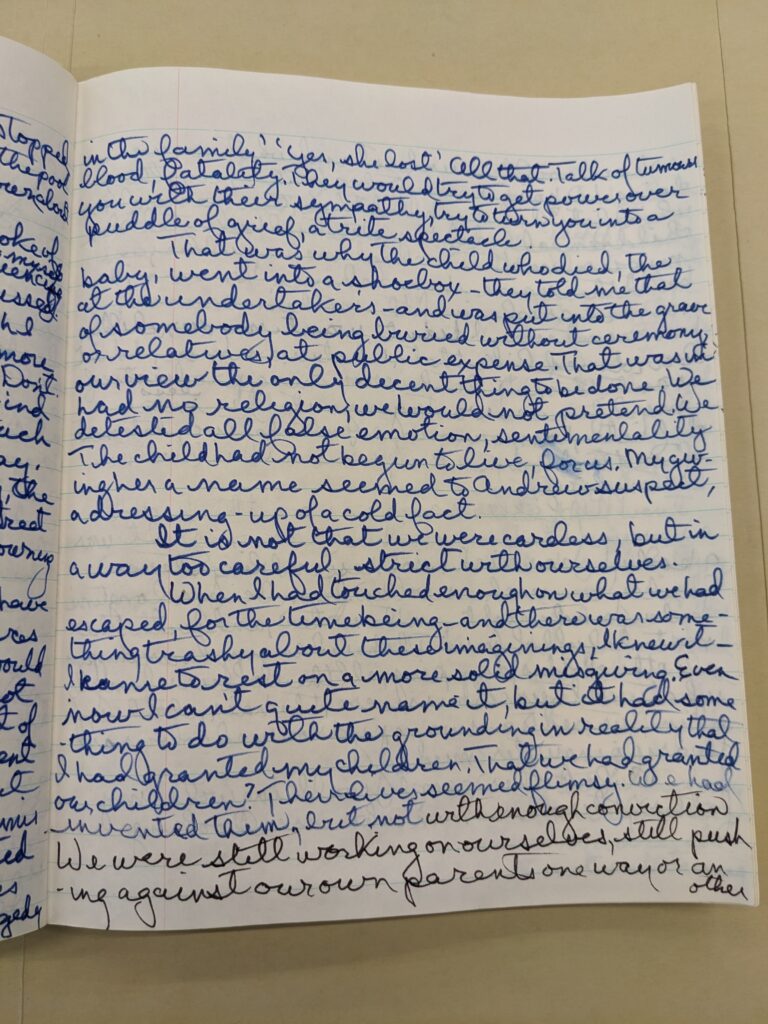 stopped
the pool
oke of
ussed.
I
more
Don't
ind
uch
ay.
, the
treet
owning
have
res
ould
ot
t of
ent
ut
ted
s
gedy
in the family' 'yes, she lost' Cell that. Talk of tumours
blood, Fatality. They would try to get power over
you with their sympathy, try to turn you into a
puddle of grief, a trite spectacle.
That was why the child who died, the
baby, went into a shoebox - they told me that
at the undertakers - and was put into the grave
of somebody being buried without ceremony,
or relatives, at public expense. That was in
our view the only decent thing to be done. We
had no religion, we would not pretend. We
detested all false emotion, sentimentality
The child had not begun to live, for us. My giv-
ing her a name seemed to Andrew suspect,
a dressing-up of a cold fact.
It is not that we were careless, but in
a way too careful, strict with ourselves.
When I had touched enough on what we had
escaped, for the time being - and there was some-
thing trashy about these imaginings, I knew it -
I came to rest on a more solid misgiving. Even
now I can't quite name it, but it had some
-thing to do with the grounding in reality that
I had granted my children. That we had granted
our children? Their lives seemed flimsy. We had
invented them, but not with enough conviction
We were still working on ourselves, still push
-ing against our own parents one way or an
other